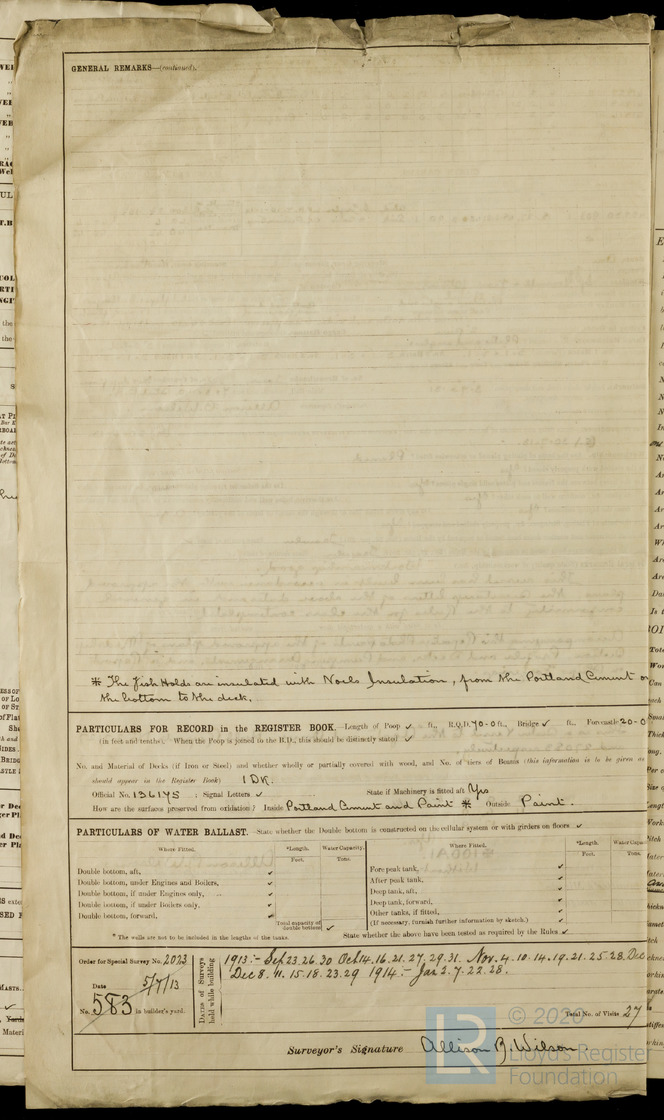 GENERAL REMARKS—(continued).
* The Fish Holds are insulated with Noels Insulation, from the Portland Cement on
the bottom to the deck.
PARTICULARS FOR RECORD in the REGISTER BOOK.—Length of Poop ✓ ft., R.Q.D. 70-0 ft., Bridge ✓ ft., Forecastle 20-0
(in feet and tenths). When the Poop is joined to the B.D., this should be distinctly stated ✓
No. and Material of Decks (if Iron or Steel) and whether wholly or partially covered with wood, and No. of tiers of Beams (this information is to be given as
should appear in the Register Book) 1 DK.
Official No. 136175 : Signal Letters ✓ State if Machinery is fitted aft Yes
How are the surfaces preserved from oxidation? Inside Portland Cement and Paint * Outside Paint.
PARTICULARS OF WATER BALLAST.—State whether the Double bottom is constructed on the cellular system or with girders on floors ✓
Where Fitted. *Length. Water Capacity. Where Fitted. *Length. Water Capa
Feet. Tons. Feet. Tons.
Double bottom, aft, ✓ Fore peak tank, ✓
Double bottom, under Engines and Boilers, ✓ After peak tank, ✓
Double bottom, if under Engines only, ✓ Deep tank, aft, ✓
Double bottom, if under Boilers only, ✓ Deep tank, forward, ✓
Double bottom, forward, ✓ Other tanks, if fitted, ✓
Total capacity of double bottom ✓ (If necessary, furnish further information by sketch.) ✓
* The wells are not to be included in the lengths of the tanks. State whether the above have been tested as required by the Rules ✓
Order for Special Survey No. 2023
Date 5/7/13
No. 583 in builder's yard.
Dates of Surveys held while building
1913:- Sep 23.26.30 Oct 14.16.21.27.29.31. Nov. 4.10.14.19.21.25.28. Dec
Dec 8. 11.15.18.23.29 1914:- Jan 2.7.22.28.
Total No. of Visits 27
Surveyor's Signature Allison R. Wilson.
© 2020
Lloyd's Register
Foundation